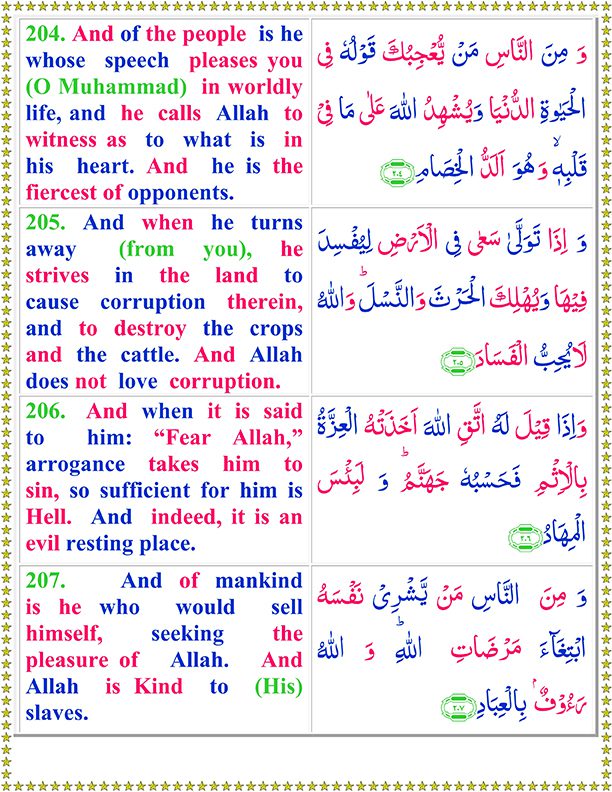 204. And of the people is he
whose speech pleases you
(O Muhammad) in worldly
life, and he calls Allah to
witness as to what is in
his heart. And he is the
fiercest of opponents.
وَ مِنَ النَّاسِ مَنْ يُّعْجِبُكَ قَوْلُهٗ فِي
الْحَيٰوةِ الدُّنْيَا وَيُشْهِدُ اللّٰهَ عَلٰى مَا فِيْ
قَلْبِهٖ ۙ وَهُوَ اَلَدُّ الْخِصَامِ ٢٠٤
205. And when he turns
away (from you), he
strives in the land to
cause corruption therein,
and to destroy the crops
and the cattle. And Allah
does not love corruption.
وَ اِذَا تَوَلّٰى سَعٰى فِي الْاَرْضِ لِيُفْسِدَ
فِيْهَا وَيُهْلِكَ الْحَرْثَ وَالنَّسْلَ ؕ وَاللّٰهُ
لَا يُحِبُّ الْفَسَادَ ٢٠٥
206. And when it is said
to him: “Fear Allah,”
arrogance takes him to
sin, so sufficient for him is
Hell. And indeed, it is an
evil resting place.
وَاِذَا قِيْلَ لَهُ اتَّقِ اللّٰهَ اَخَذَتْهُ الْعِزَّةُ
بِالْاِثْمِ فَحَسْبُهٗ جَهَنَّمُ ؕ وَ لَبِئْسَ
الْمِهَادُ ٢٠٦
207. And of mankind
is he who would sell
himself, seeking the
pleasure of Allah. And
Allah is Kind to (His)
slaves.
وَ مِنَ النَّاسِ مَنْ يَّشْرِيْ نَفْسَهُ
ابْتِغَآءَ مَرْضَاتِ اللّٰهِ ؕ وَ اللّٰهُ
رَءُوْفٌۢ بِالْعِبَادِ ٢٠٧